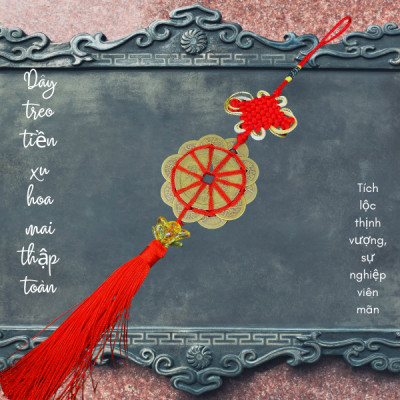 Dây
treo
tiền
xu
hoa
mai
thập
toàn
Tích
lộc
thịnh
vượng,
sự
nghiệp
viên
mãn